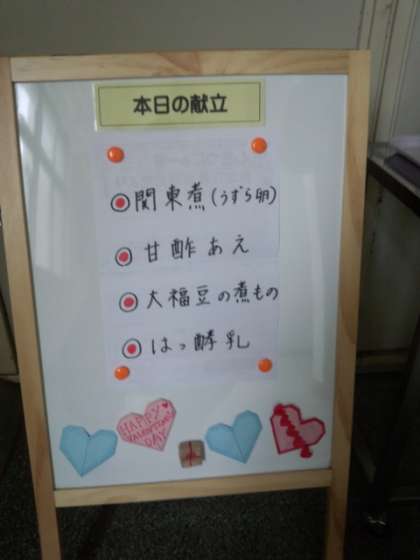 本日の献立
関東煮(うずら卵)
甘酢あえ
大福豆の煮もの
はっ酵乳
HAPPY
VALENTINE'S
DAY